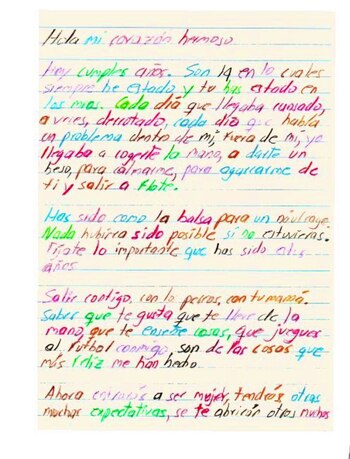 Hola mi corazón hermoso
Hoy cumples años. Son 14 en lo cuales
siempre he estado y tu has estado en
los mios. Cada día que llegaba cansado,
a veces, derrotado, cada día que había
un problema dentro de mí, fuera de mí, yo
llegaba a cogerte la mano, a darte un
beso, para calmarme, para agarrarme de
ti y salir a flote.
Has sido como la balsa para un naufrago.
Nada hubiera sido posible si no estuvieras.
Fijate lo importante que has sido estos
años
Salir contigo, con lo perros, con tu mamá.
Saber que te gusta que te lleve de la
mano, que te enseñe cosas, que juegues
al futbol conmigo, son de las cosas que
más feliz me han hecho.
Ahora entrarás a ser mujer, tendrás otras
muchas expectativas, se te abrirán otros muchos